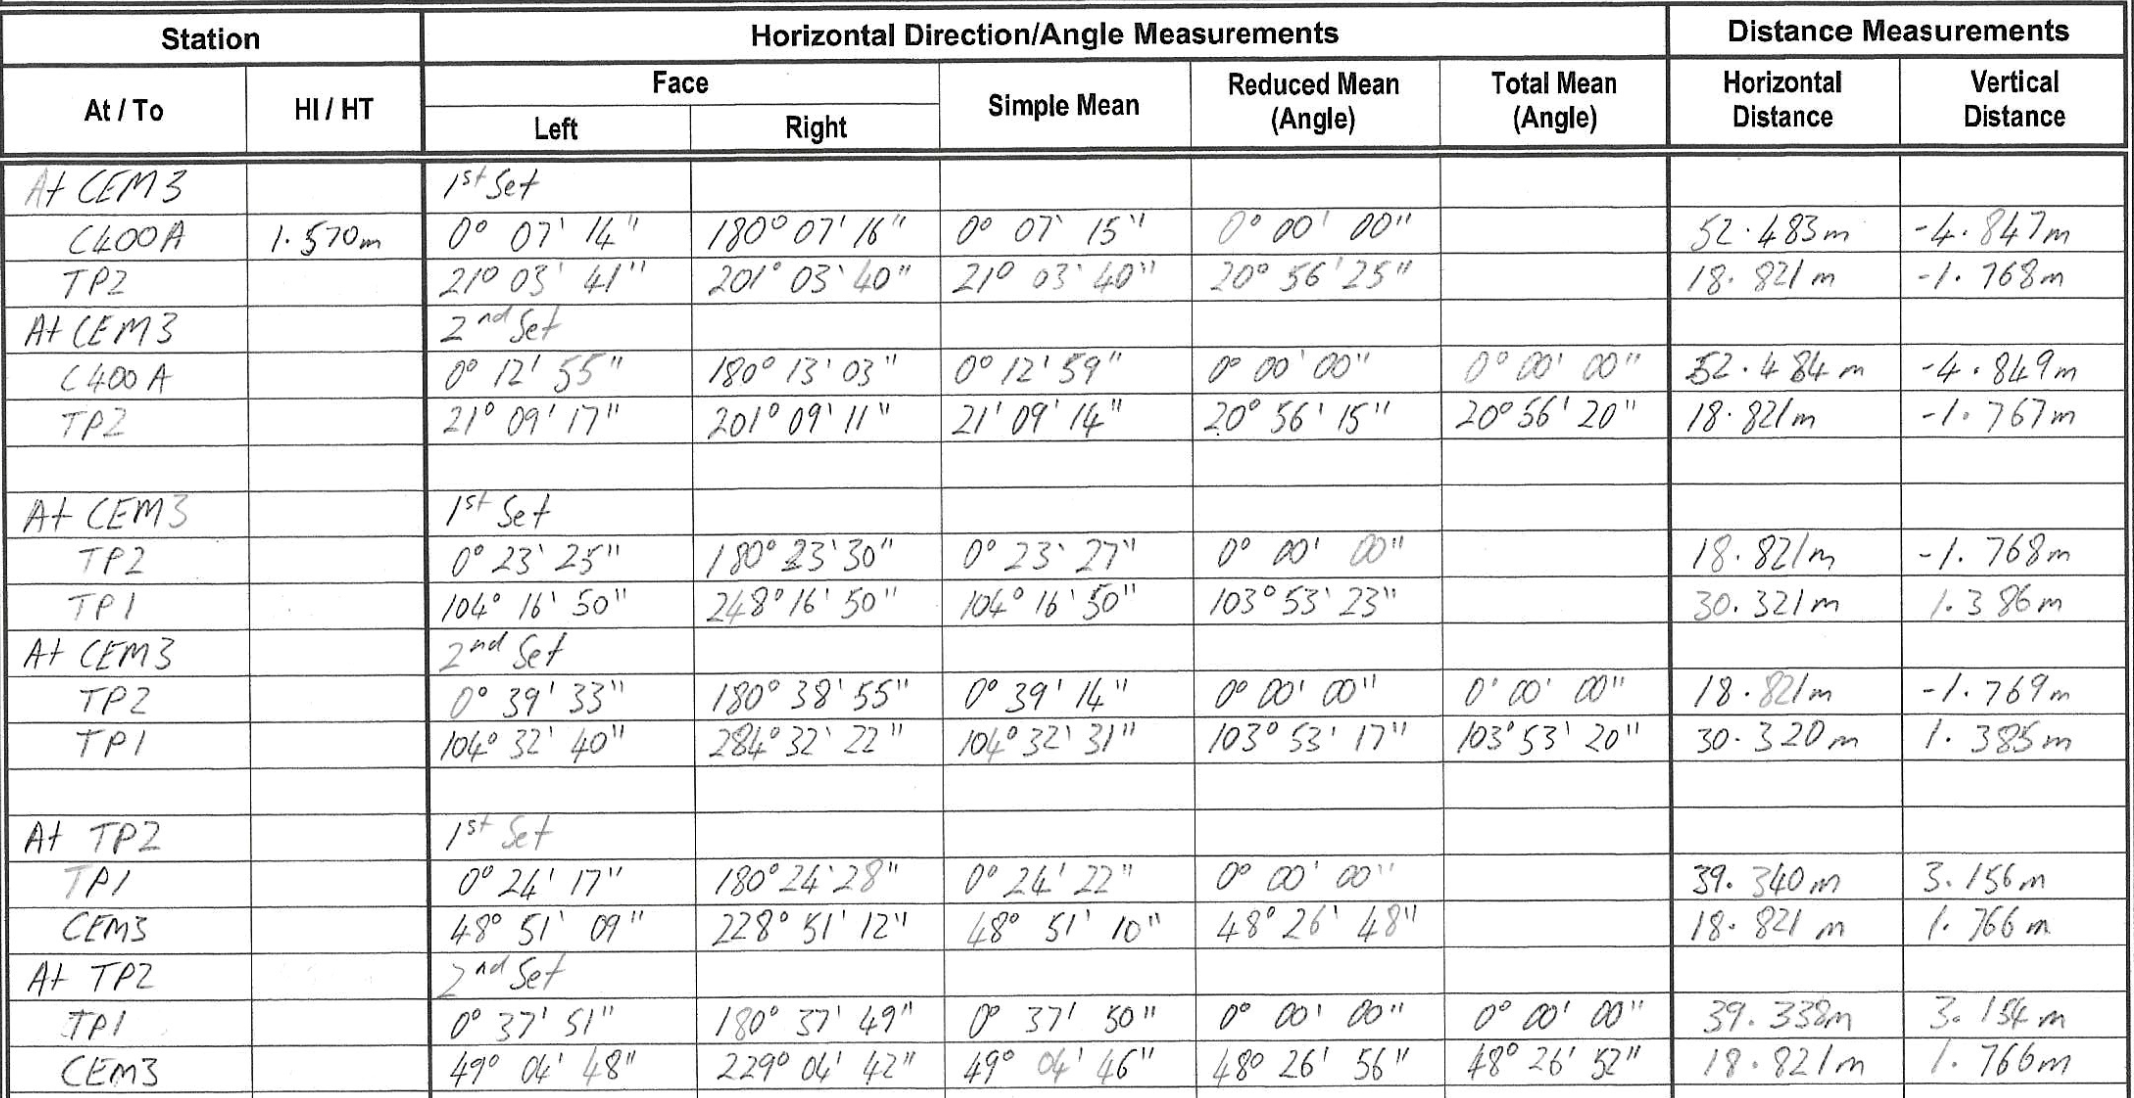 Station Horizontal Direction/Angle Measurements Distance Measurements
At / To HI / HT Face Simple Mean Reduced Mean (Angle) Total Mean (Angle) Horizontal Distance Vertical Distance
Left Right
At CEM3 1st Set
C400A 1.570m 0° 07' 14" 180° 07' 16" 0° 07' 15" 0° 00' 00" 52.483m -4.847m
TP2 21° 03' 41" 201° 03' 40" 21° 03' 40" 20° 56' 25" 18.821m -1.768m
At CEM3 2nd Set
C400A 0° 12' 55" 180° 13' 03" 0° 12' 59" 0° 00' 00" 0° 00' 00" 52.484m -4.849m
TP2 21° 09' 17" 201° 09' 11" 21' 09' 14" 20° 56' 15" 20° 56' 20" 18.821m -1.767m
At CEM3 1st Set
TP2 0° 23' 25" 180° 23' 30" 0° 23' 27" 0° 00' 00" 18.821m -1.768m
TP1 104° 16' 50" 248° 16' 50" 104° 16' 50" 103° 53' 23" 30.321m 1.386m
At CEM3 2nd Set
TP2 0° 39' 33" 180° 38' 55" 0° 39' 14" 0° 00' 00" 0° 00' 00" 18.821m -1.769m
TP1 104° 32' 40" 284° 32' 22" 104° 32' 31" 103° 53' 17" 103° 53' 20" 30.320m 1.385m
At TP2 1st Set
TP1 0° 24' 17" 180° 24' 28" 0° 24' 22" 0° 00' 00" 39.340m 3.156m
CEM3 48° 51' 09" 228° 51' 12" 48° 51' 10" 48° 26' 48" 18.821m 1.766m
At TP2 2nd Set
TP1 0° 37' 51" 180° 37' 49" 0° 37' 50" 0° 00' 00" 0° 00' 00" 39.338m 3.154m
CEM3 49° 04' 48" 229° 04' 42" 49° 04' 46" 48° 26' 56" 48° 26' 52" 18.821m 1.766m